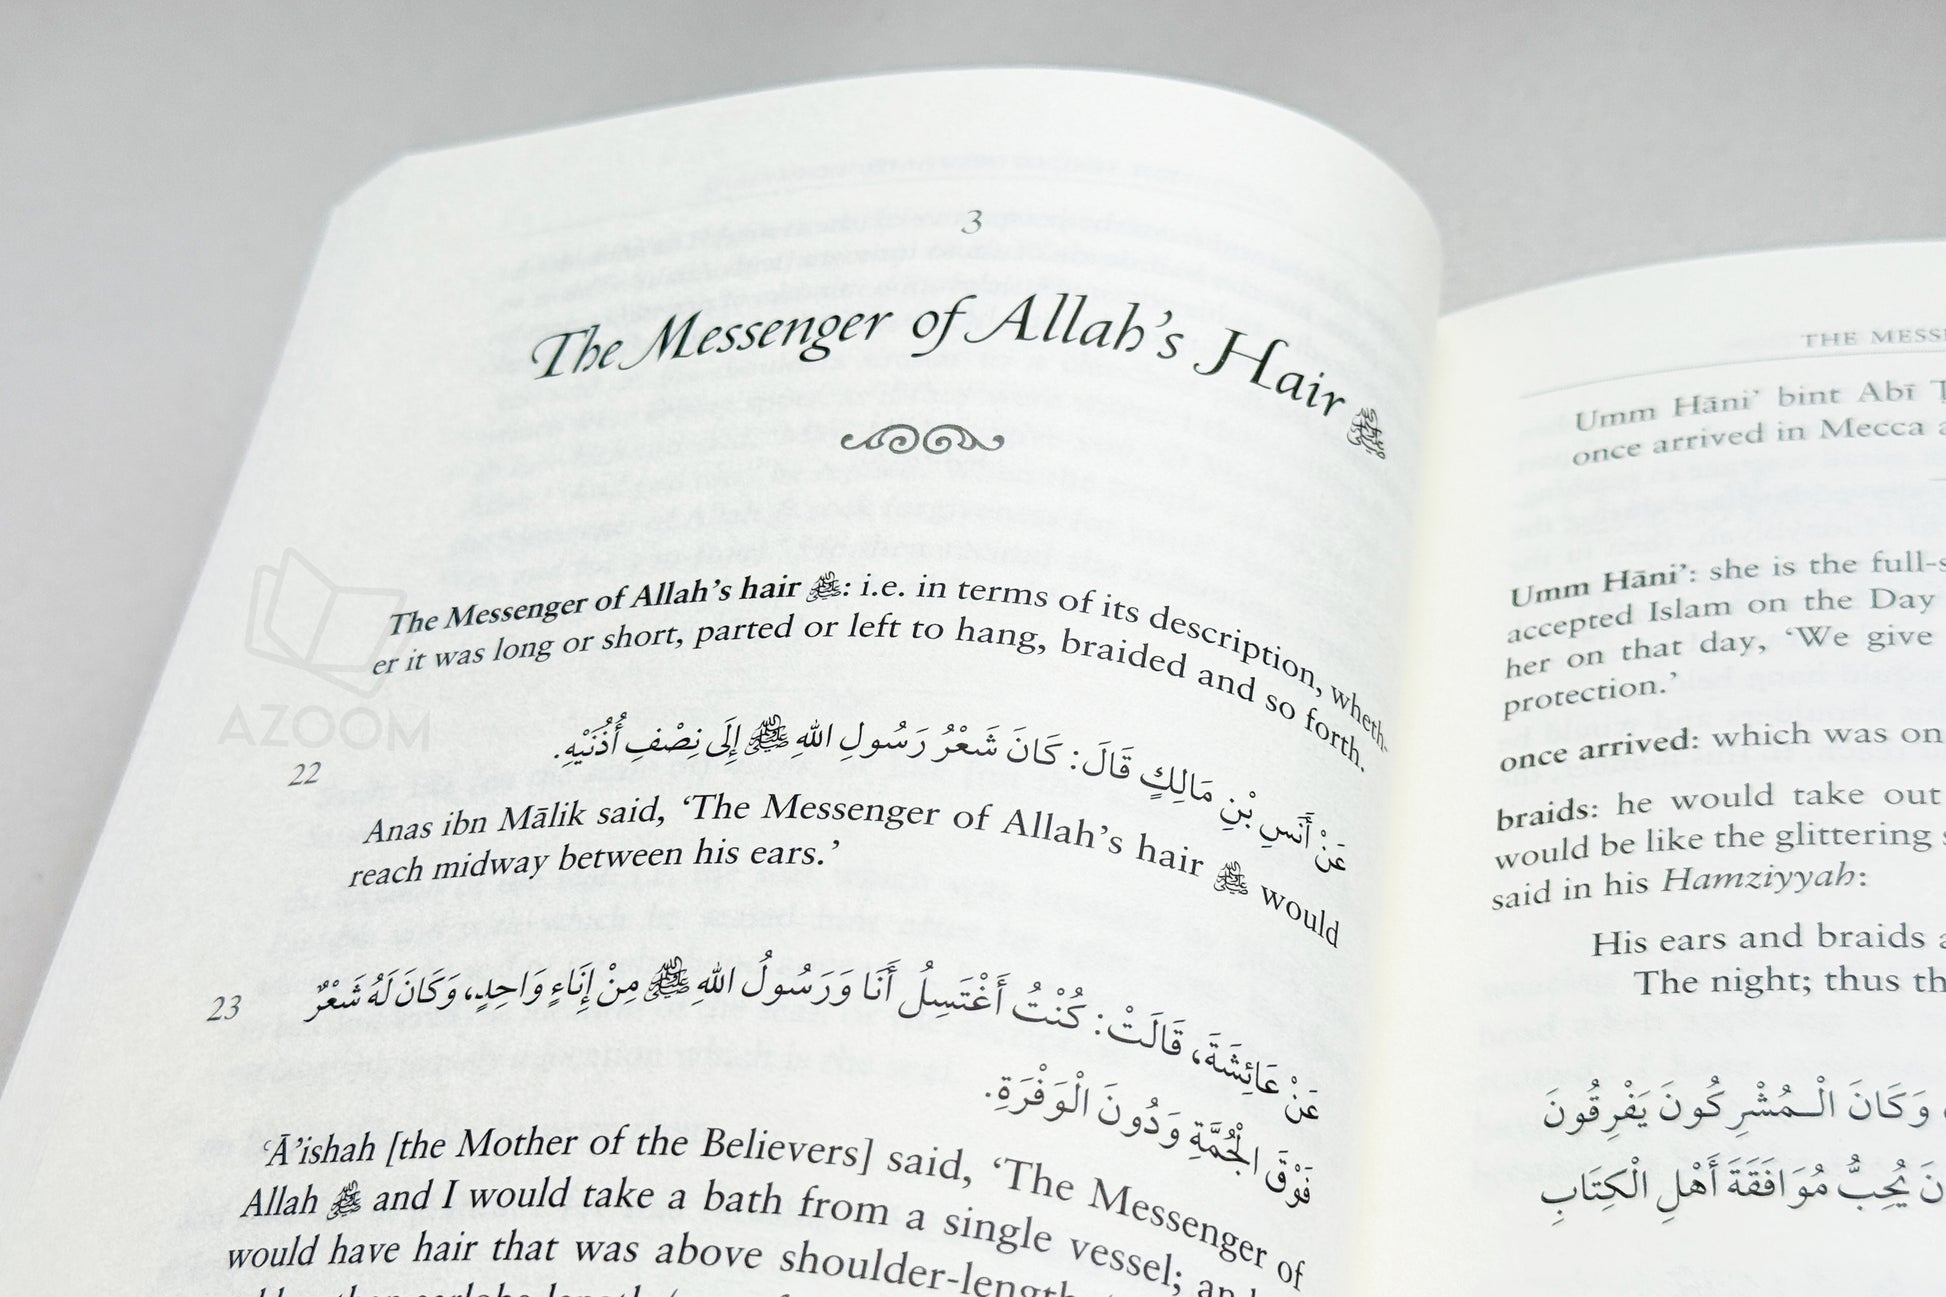 3
The Messenger of Allah's Hair ﷺ
The Messenger of Allah's hair ﷺ: i.e. in terms of its description, wheth-
er it was long or short, parted or left to hang, braided and so forth.
عَنْ أَنَسِ بْنِ مَالِكٍ قَالَ: كَانَ شَعْرُ رَسُولِ اللهِ ﷺ إِلَى نِصْفِ أُذُنَيْهِ.
22
Anas ibn Mālik said, 'The Messenger of Allah's hair ﷺ would
reach midway between his ears.'
23
عَنْ عَائِشَةَ، قَالَتْ: كُنْتُ أَغْتَسِلُ أَنَا وَرَسُولُ اللهِ ﷺ مِنْ إِنَاءٍ وَاحِدٍ، وَكَانَ لَهُ شَعْرٌ
فَوْقَ الْجُمَّةِ وَدُونَ الْوَفْرَةِ.
'Ā'ishah [the Mother of the Believers] said, 'The Messenger of
Allah ﷺ and I would take a bath from a single vessel; and
would have hair that was above shoulder-length
THE MESSE
Umm Hāni' bint Abī
once arrived in Mecca
Umm Hāni': she is the full-s
accepted Islam on the Day
her on that day, 'We give
protection.'
once arrived: which was on
braids: he would take out
would be like the glittering
said in his Hamziyyah:
His ears and braids
The night; thus th
وَكَانَ الْـمُشْرِكُونَ يَفْرِقُونَ
يُحِبُّ مُوَافَقَةَ أَهْلِ الْكِتَابِ
AZOOM